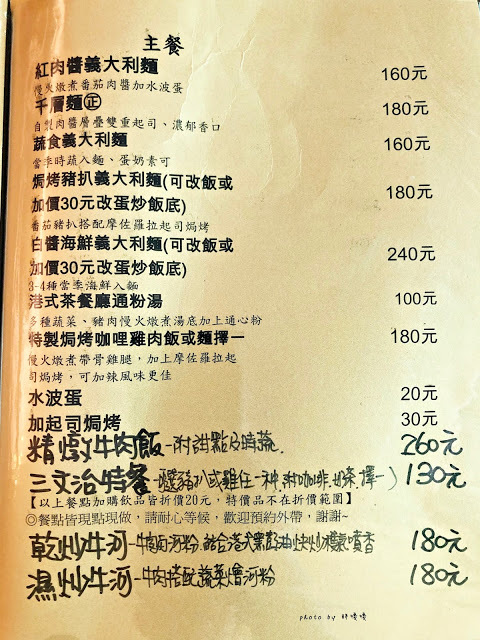 主餐
紅肉醬義大利麵 160元
慢火燉煮番茄肉醬加水波蛋
千層麵㊣ 180元
自製肉醬層疊雙重起司、濃郁香口
蔬食義大利麵 160元
當季時蔬入麵、蛋奶素可
焗烤豬扒義大利麵(可改飯或 180元
加價30元改蛋炒飯底)
番茄豬扒搭配摩佐羅拉起司焗烤
白醬海鮮義大利麵(可改飯或 240元
加價30元改蛋炒飯底)
3-4種當季海鮮入麵
港式茶餐廳通粉湯 100元
多種蔬菜、豬肉慢火燉煮湯底加上通心粉
特製焗烤咖哩雞肉飯或麵擇一 180元
慢火燉煮帶骨雞腿，加上摩佐羅拉起
司焗烤，可加辣風味更佳
水波蛋 20元
加起司焗烤 30元
精燉牛肉飯-附甜點及時蔬. 260元
三文治特餐-(選豬扒或雞任一種,附咖啡.奶茶擇一) 130元
【以上餐點加購飲品皆折價20元，特價品不在折價範圍】
◎餐點皆現點現做，請耐心等候，歡迎預約外帶，謝謝~
乾炒牛河-牛肉河粉 結合港式黑醬油快炒鑊氣噴香 180元
濕炒牛河-牛肉搭配蔬菜燴河粉 180元
photo by 胖嘰嘰